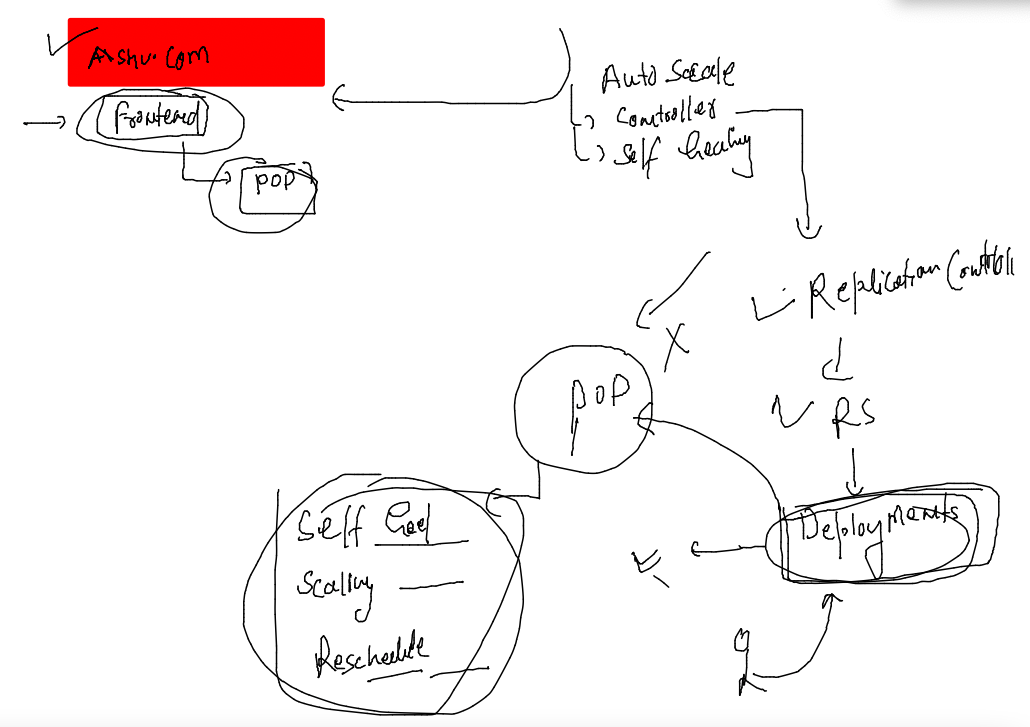 Ashu.com
frontend
POD
Auto Scale
controller
self healing
Replication Controll
RS
POD
Deployments
Self heal
Scaling
Reschedule